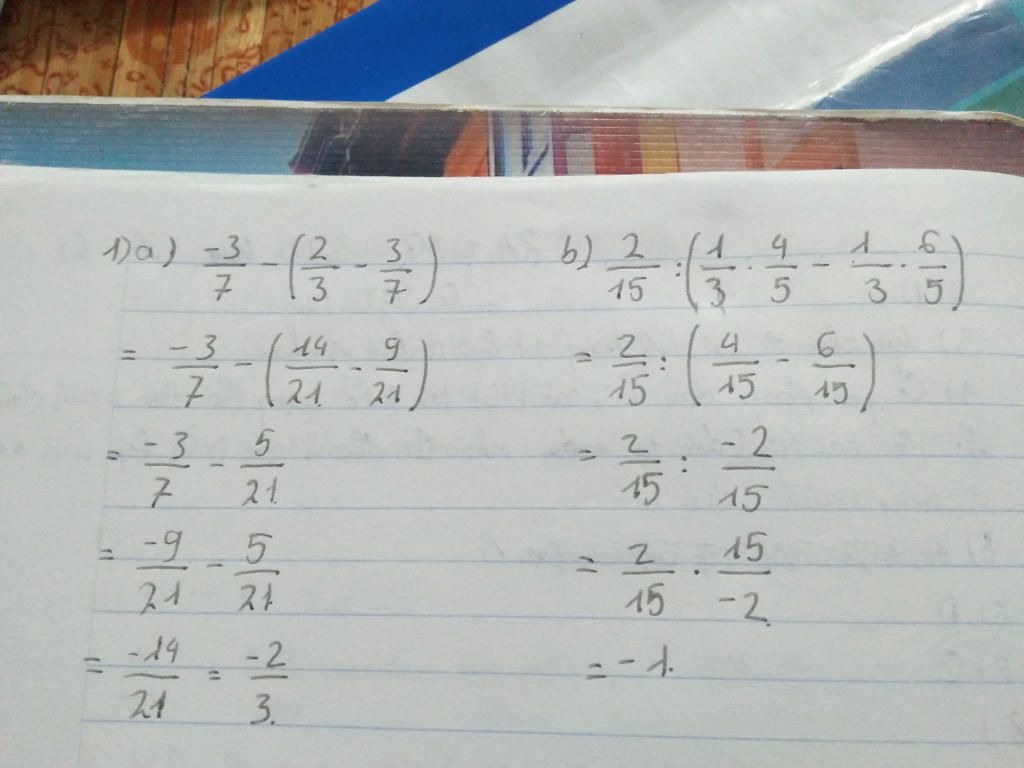 1)a) -3/7 - (2/3 - 3/7)
= -3/7 - (14/21 - 9/21)
= -3/7 - 5/21
= -9/21 - 5/21
= -14/21 = -2/3.
b) 2/15 : (1/3 . 4/5 - 1/3 . 6/5)
= 2/15 : (4/15 - 6/15)
= 2/15 : -2/15
= 2/15 . 15/-2.
= -1.